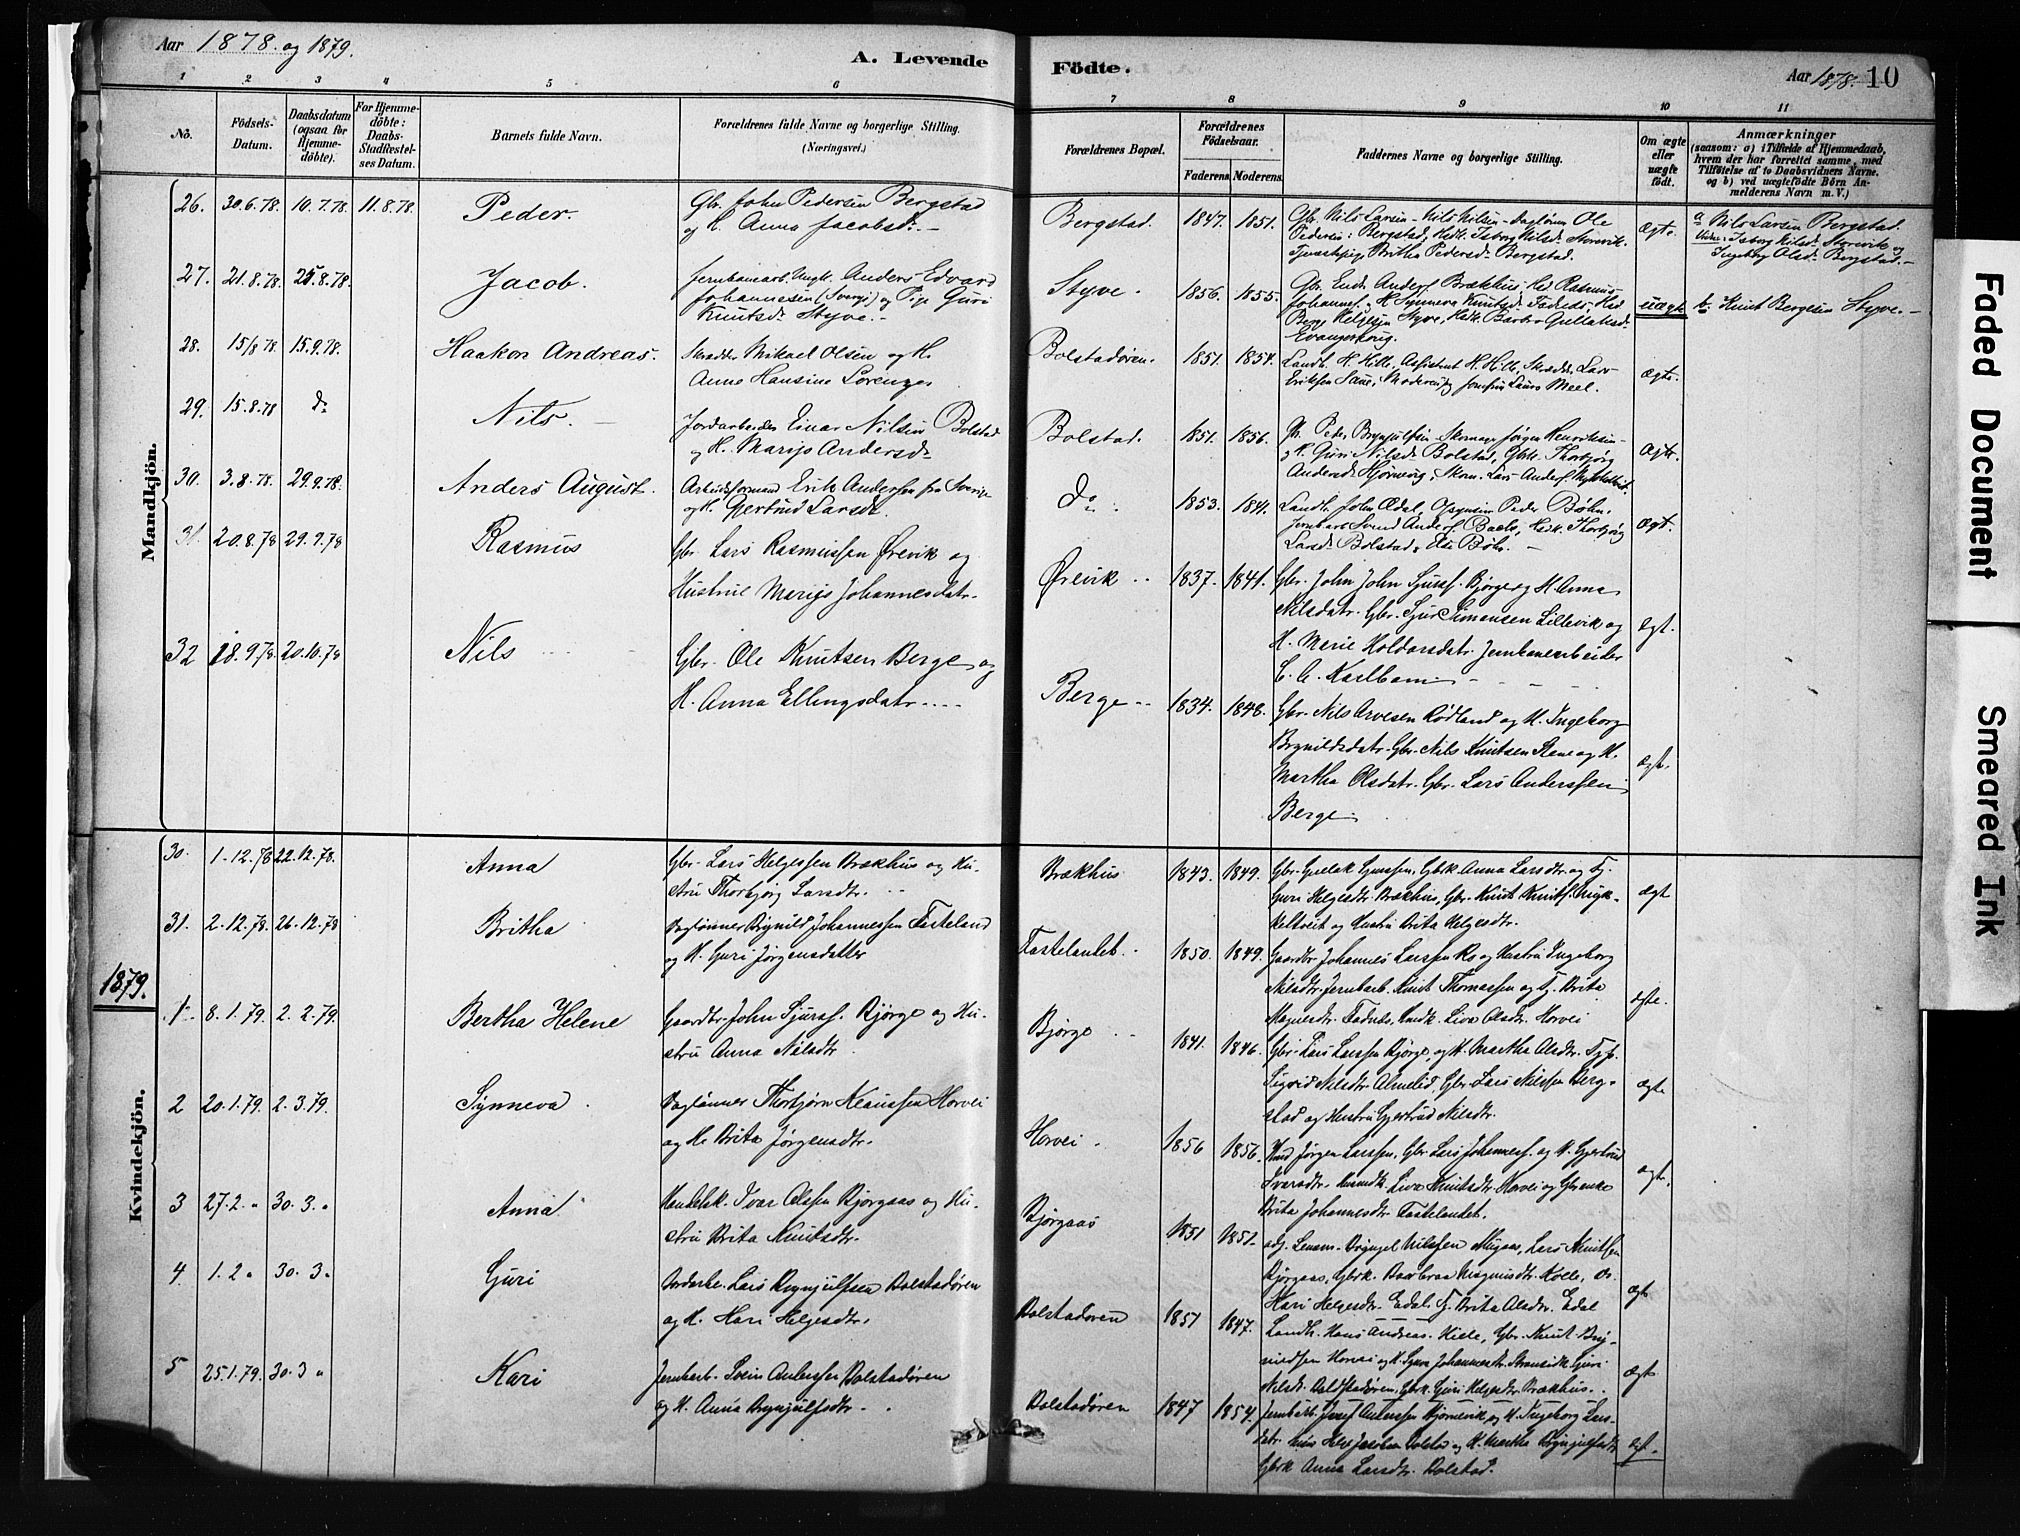 Aar 1878. og 1879.
A. Levende Födte.
Aar 1878. 10
1 2 3 4 5 6 7 8 9 10 11
No.
Födsels-Datum.
Daabsdatum (ogsaa for Hjemme-döbte).
For Hjemme-döbte: Daabs-Stadfæstel-ses Datum.
Barnets fulde Navn.
Forældrenes fulde Navne og borgerlige Stilling. (Næringsvei.)
Forældrenes Bopæl.
Forældrenes Födselsaar.
Faderens. Moderens.
Faddernes Navne og borgerlige Stilling.
Om ægte eller uægte födt.
Anmærkninger
(saasom: a) i Tilfælde af Hjemmedaab,
hvem der har forrettet samme, med
Tilföielse af to Daabsvidners Navne.
og b) ved uægtefödte Börn An-
melderens Navn m. V.)
Mandkjön.
26. 30.6.78. 10.7.78. 11.8.78. Peder.
Gbr. John Pedersen Bergstad
og H. Anna Jacobsd. –
Bergstad. 1847. 1851.
Gbr. Nils Larsen – Nils Nilsen – Dagløn Ole
Pedersen: Bergstad, Isborg Nilsd. Storevik.
Tjenestepig Britha Pedersd. Bergstad.
ægte.
a Nils Larsen Bergstad.
Isborg Nilsd. Storevik og
Ingeborg Olsd. Bergstad. –
27. 21.8.78. 25.8.78. Jacob.
Jernbanearb. Ungk. Anders Edvard
Johannesen (Sverige) og Pige Guri
Knutsd. Styve. –
Styve. 1856. 1855.
Brækhus, Rasmus
Johannes. H. Synneva Knutsd.
Berge Helgesen Styve,
uægte
b Knut Bergesen Styve. –
28. 15/8 78. 15.9.78. Haakon Andreas.
Skrædder Mikael Olsen og H.
Anne Hansine Lorenze
Bolstadøren. 1851. 1854.
Landh. H. Helle, Assistent H. Helle, Skrædder Lars
Eriksen
ægte.
29. 15.8.78 do Nils. –
Jordarbeider Einar Nilsen Bolstad
og H. Marijo Andersd.
Bolstad. 1851. 1856.
Peder Brynjulfsen Skomager Jørgen Henriksen –
og H. Guri Nilsd. Bolstad, Gbk. Thorbjørg
Andersd.
ægte.
30. 3.8.78. 29.9.78. Anders August.
Arbeidsformand Erik Andersen fra Sverige
og H. Gjertrud Larsd.
do. 1853. 1841.
Landh. John Ædal, Peder Bøhn,
Thorbjørg
Larsd. Bolstad, Else Bøhn. –
ægt.
31. 20.8.78 29.9.78 Rasmus
Gbr. Lars Rasmussen Ørevik og
Hustrue Marijs Johannesdatr.
Ørevik .. 1837. 1841.
Gbr. John John Sjurss. Bjørge og H. Anna
Nilsdatr. Gbr. Sjur Simonsen Lillevik og
H. Marie Haldorsdatr. Jernbanearbeider
C. C.
ægt.
32 18.9.78. 20.10.78 Nils
Gbr. Ole Knutsen Berge og
H. Anna Ellingsdatr. ....
Berge .. 1834. 1848.
Gbr. Nils Arvesen Rødland og H. Ingeborg
Brynildsdatr. Gbr. Nils Knutsen Stene og H.
Martha Olsdatr. Gbr. Lars Anderssen
Berge.
ægt.
Kvindekjön.
30. 1.12.78 22.12.78. Anna
Gbr. Lars Helgessen Brækhus og Hu-
stru Thorbjørg Larsdtr.
Brækhus 1843. 1849.
Gbr. Gullak Sjurssen, Gbrk Anna Larsdtr. og Tj.
Guri Helgesdtr. Brækhus, Gbr. Knut Knuts.
og Hustru Brita Helgesdtr.
ægt
31. 2.12.78. 26.12.78 Britha
Daglønner Brynild Johannessen Fasteland
og H. Guri Jørgensdatter
Fastelandet. 1850. 1849.
Gaardbr. Johannes Larssen Ro og Hustru Ingeborg
Nilsdtr. Jernbarb. Knut Thomassen og Tj. Brita
Magnesdtr. Liva Olsdtr. Horvei
ægte.
1879.
1. 8.1.79. 2.2.79. Bertha Helene
Gaardbr. John Sjurss. Bjørge og Hu-
stru Anna Nilsdtr.
Bjørge 1841. 1846.
Gbr. Lars Larssen Bjørge, og H. Martha Olsdtr.
Sigrid Nilsdtr. Gbr. Lars Nilssen Berg-
stad og Hustru Gjertrud Nilsdtr.
ægte
2 20.1.79. 2.3.79. Synneva
Dagløner Thorbjørn Klaussen Horvei
og H. Brita Jørgensdtr.
Horvei. 1856 1856.
Jørgen Larssen, Gbr. Lars Johanness. og H. Gjertrud
Iversdtr. Liva Knutsdtr. Horvei og
Brita Johannesdtr. Fastelandet.
ægt.
3 27.2. " 30.3. " Anna
Handelsk. Ivar Olssen Bjørgaas og Hu-
stru Brita Knutsdtr.
Bjørgaas 1851 1851.
Nilssen Lars Knutsen
Bjørgaas, Gbrk.
Kari Helgesdtr. Edal, Tj. Brita Olsdtr. Edal
ægt
4. 1.2 " 30.3 " Guri
Jordarbe. Lars Brynjulfsen Bolstadøren
og H. Kari Helgesdtr.
Bolstadøren 1851 1847.
Landh. Hans Andreas Helle, Gbr. Knut Bry-
nildsen Horvei og H.
Nilsdt. Bolstadøren, Gbrk. Guri Helgesdtr. Brækhus.
ægt
5 25.1.79. 30.3 " Kari
Jernbarb. Svein Anderssen Bolstadøren
og H. Anna Brynjulfsdtr.
Bolstadøren 1847 1854.
Jernbarb. Josef Anderssen og H. Ingeborg Lars-
datr. Bolstad og H. Martha Brynjulfsdtr.
Gbrk Anna Larsdtr. Bolstad.
ægt.
Faded Document
Smeared Ink